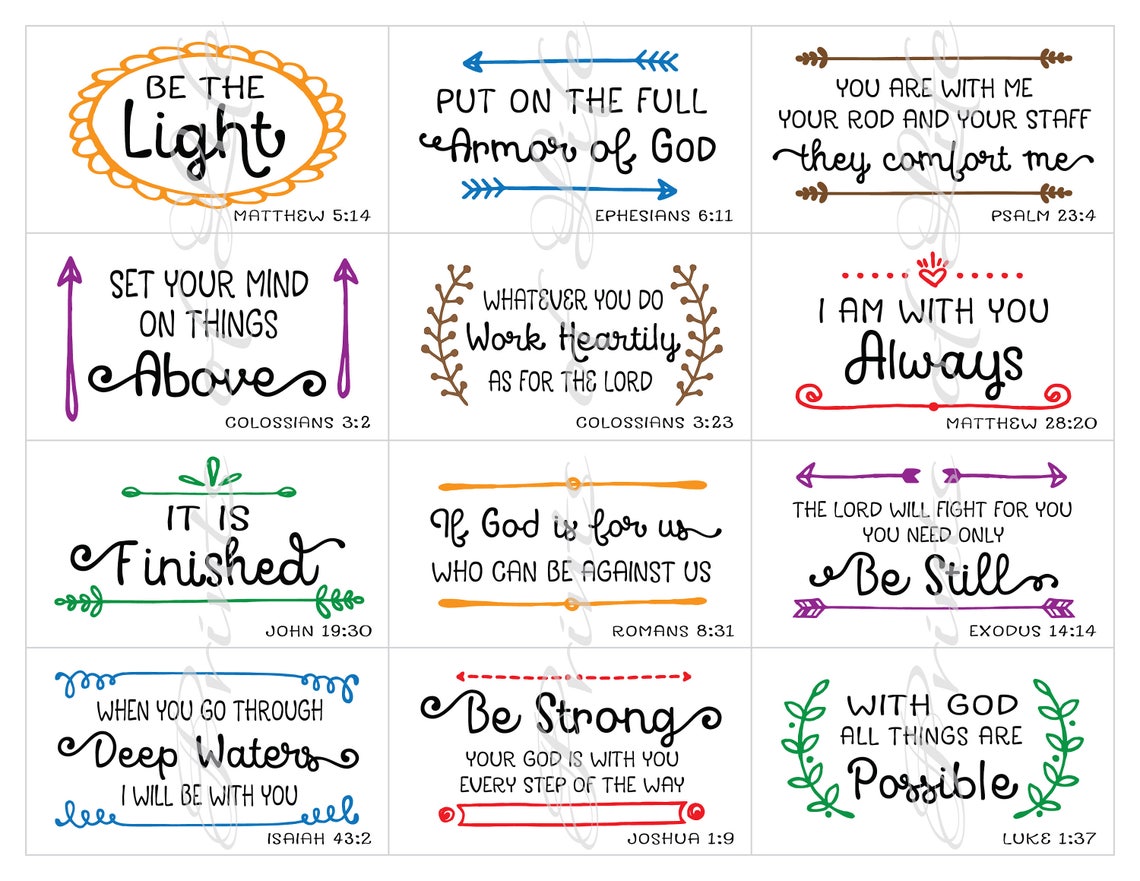 BE THE
Light
MATTHEW 5:14
PUT ON THE FULL
Armor of GOD
EPHESIANS 6:11
YOU ARE WITH ME
YOUR ROD AND YOUR STAFF
they comfort me
PSALM 23:4
SET YOUR MIND
ON THINGS
Above
COLOSSIANS 3:2
WHATEVER YOU DO
Work Heartily
AS FOR THE LORD
COLOSSIANS 3:23
I AM WITH YOU
Always
MATTHEW 28:20
IT IS
Finished
JOHN 19:30
If God is for us
WHO CAN BE AGAINST US
ROMANS 8:31
THE LORD WILL FIGHT FOR YOU
YOU NEED ONLY
Be Still
EXODUS 14:14
WHEN YOU GO THROUGH
Deep Waters
I WILL BE WITH YOU
ISAIAH 43:2
Be Strong
YOUR GOD IS WITH YOU
EVERY STEP OF THE WAY
JOSHUA 1:9
WITH GOD
ALL THINGS ARE
Possible
LUKE 1:37
Prints of Life
Prints of Life
Prints of Life